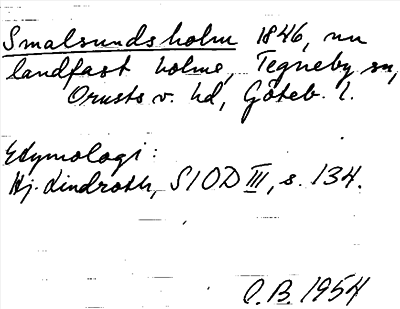 Smalsundsholm 1846, nu
landfast holme, Tegneby sn,
Orusts v. hd, Göteb. l.
Etymologi:
Hj. Lindroth, SIOD III, s. 134.
O.B. 1954